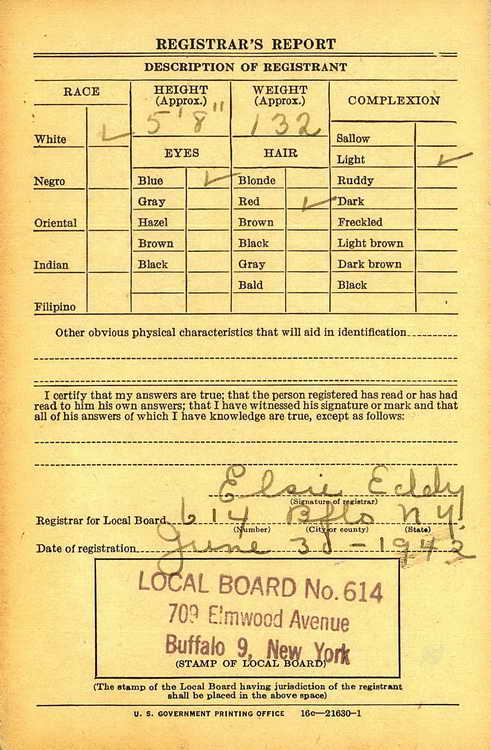 REGISTRAR'S REPORT
DESCRIPTION OF REGISTRANT
RACE
HEIGHT
(Approx.)
WEIGHT
(Approx.)
COMPLEXION
5'8"
132
White ✓
EYES
HAIR
Sallow
Light ✓
Negro
Blue ✓
Blonde
Ruddy
Gray
Red ✓
Dark
Oriental
Hazel
Brown
Freckled
Brown
Black
Light brown
Indian
Black
Gray
Dark brown
Bald
Black
Filipino
Other obvious physical characteristics that will aid in identification
I certify that my answers are true; that the person registered has read or has had
read to him his own answers; that I have witnessed his signature or mark and that
all of his answers of which I have knowledge are true, except as follows:
Elsie Eddy
(Signature of registrar)
Registrar for Local Board 614 Bflo N.Y.
(Number) (City or county) (State)
Date of registration June 30-1942
LOCAL BOARD No. 614
709 Elmwood Avenue
Buffalo 9, New York
(STAMP OF LOCAL BOARD)
(The stamp of the Local Board having jurisdiction of the registrant
shall be placed in the above space)
U. S. GOVERNMENT PRINTING OFFICE 16c—21630-1